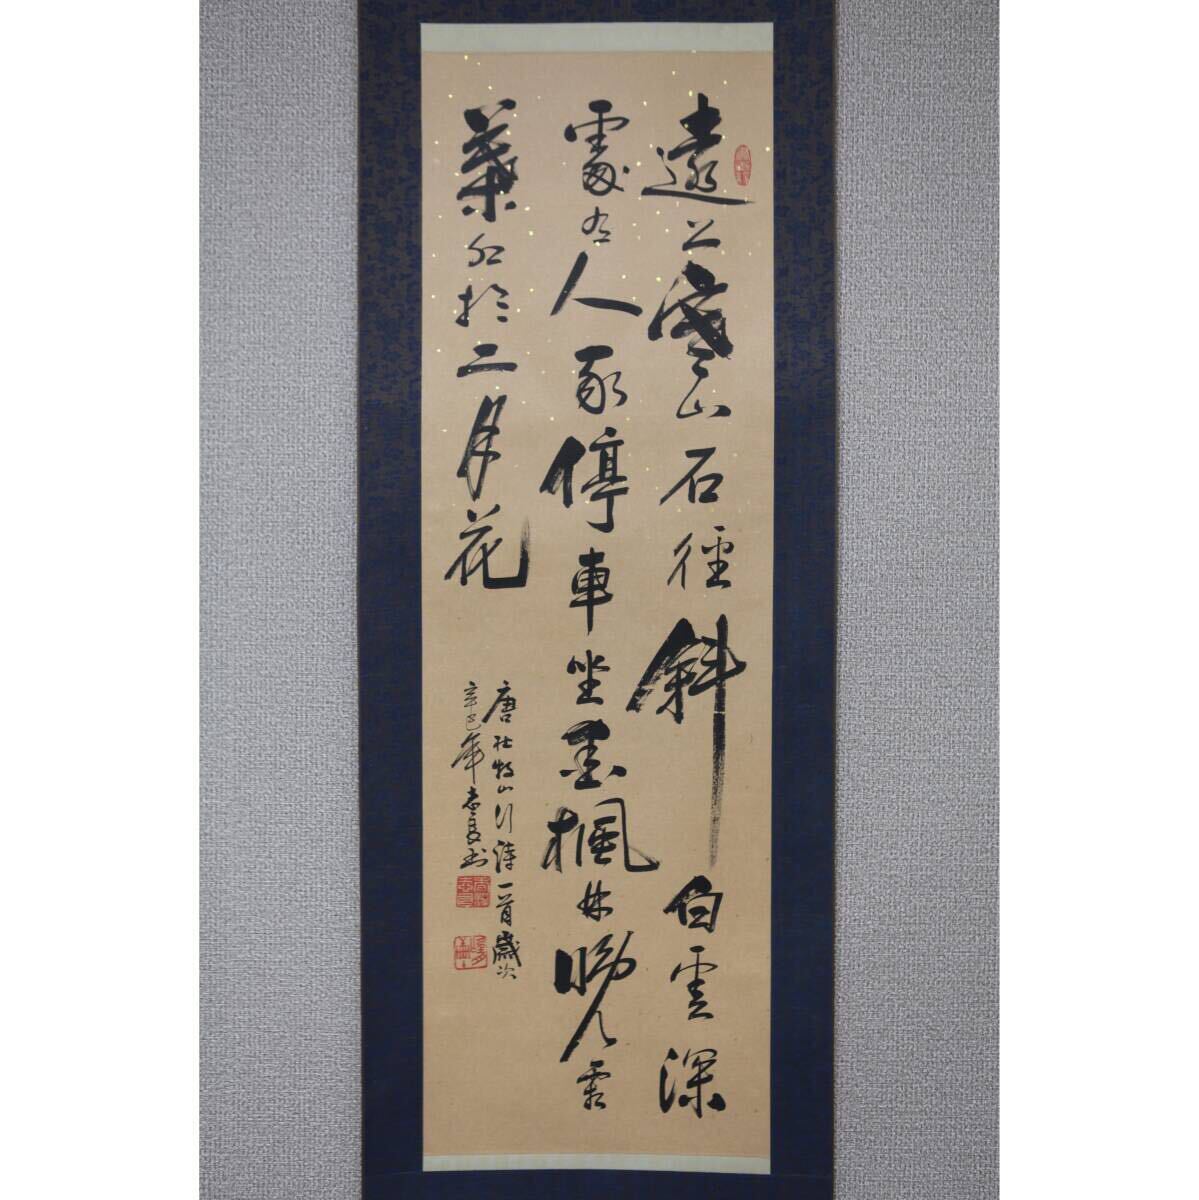 遠上寒山石徑斜白雲深
處有人家停車坐愛楓林晚霜
葉紅於二月花
唐杜牧山行詩一首歲次
辛巳年志良書